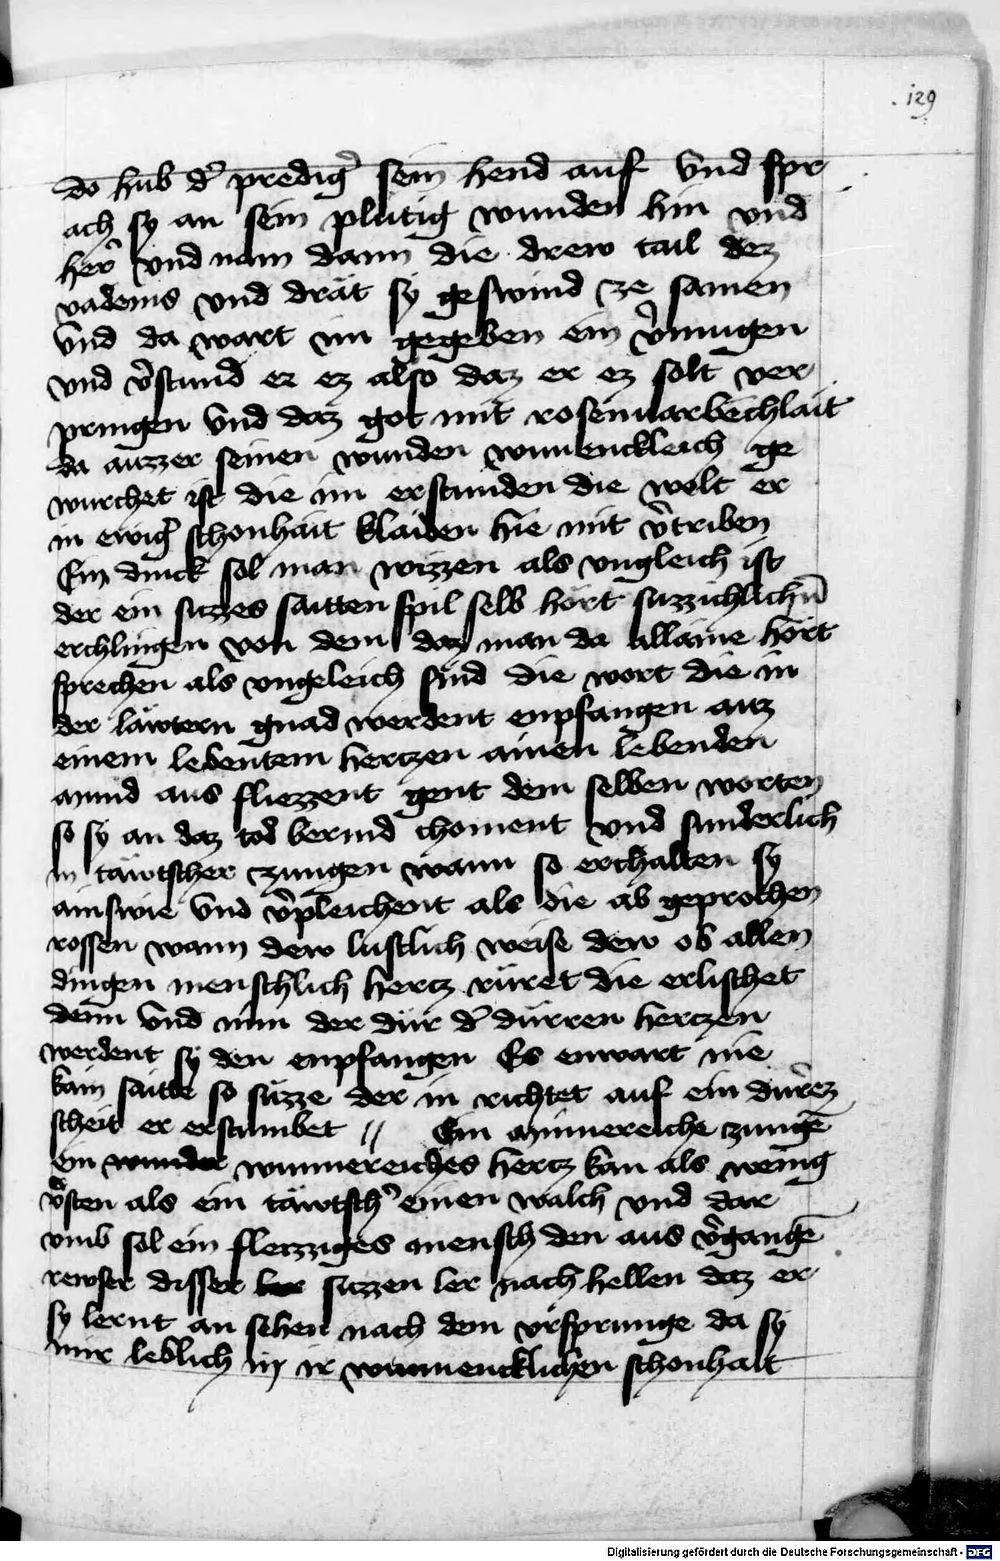 129
do hub d' predig' sein hend auf Vnd spr
ach sy an sein plutig wunden hin vnd
her vnd nam dann die drew tail dez
vadems vnd drät sy geswind ze samen
Vnd da wart im gegeben ein v'mugen
vnd v'stund er ez also daz er ez solt ver
pringen Vnd daz got mit rosenuarbechlait
da auzzer seinen wunden wunenckleich ge
wurchet ist die im erstunden die welt er
in ewig' schonhait klaiden hie mit v'triben
Ein dinck sol man wizzen als vngleich ist
der ein suzzes saitten spil selb hört suzzichlichn̄
erchlingen von dem daz man da allaine hört
sprechen als vngeleich sind die wort die in
der läwtern gnad werdent enpfangen auz
einem lebentem hertzen ainen lebenden
mund aus fliezzent gent dem selben worten
so sy an daz tod bermd choment vnd sunderlich
in täwtscher zungen wann so erchalten sy
ainswie Vnd v'pleichent als die ab geprochen
rossen wann dew lustlich weise dew ob allen
dingen menschlich hertz rüret die erlischet
denn Vnd inn der dür d' dürren hertzen
werdent sy den enpfangen Es enwart nie
kain saitte so süzze der in richtet auf ein dürrez
scheit er erstumbet // Ein minnereiche zunge
ein wunnereiches hertz kan als wenig
v'sten als ein täwtsch' einen walch vnd dar
vmb sol ein fleizziges mensch den aus v'gangē
rewser disser suzzen ler nach hellen daz er
sy lernt an sehen nach dem vrsprunge da sy
mir leblich in ir wunnencklichen schonhait
Digitalisierung gefördert durch die Deutsche Forschungsgemeinschaft - DFG